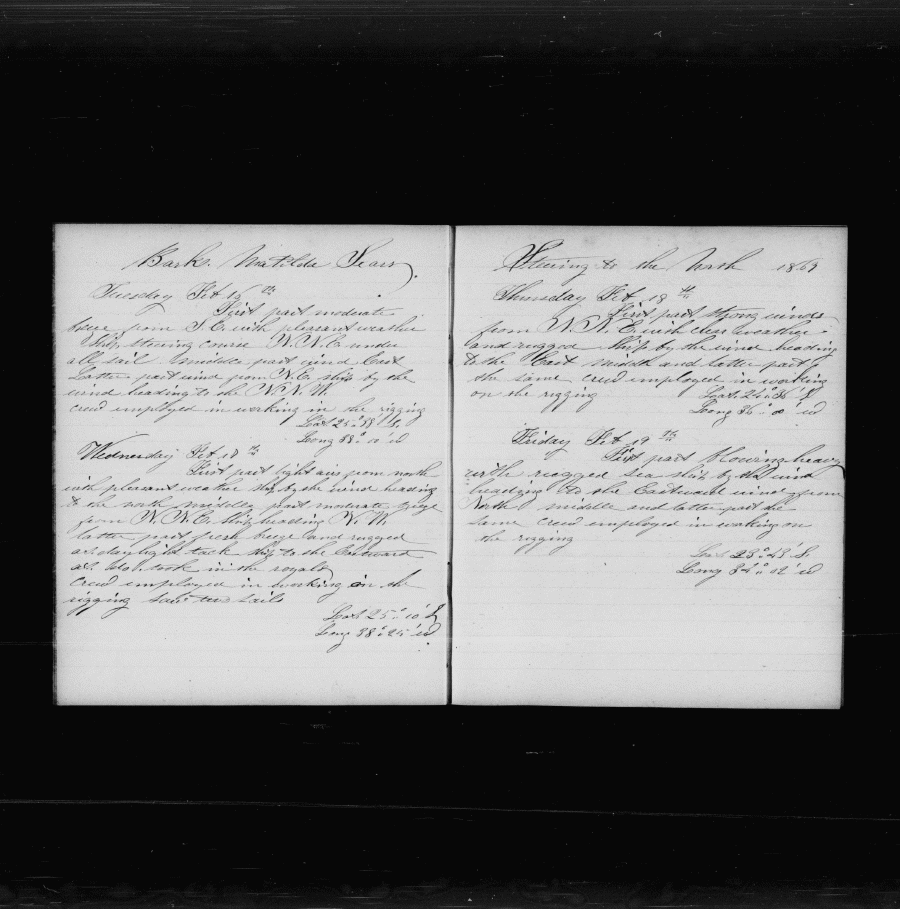 Bark. Matilda Sears.
Tuesday Feb 16th
First part moderate
breze from S. E. with pleasant weather
Ship steering course N. N. E under
all sail middle part wind East
Latter part wind from N. E. ship by the
wind heading to the N. N. W.
crew employed in working in the rigging
Lat 25°
Long 38°
Wednesday Feb 17th
First part light airs from north
with pleasant weather ship by the wind heading
to the north middle part moderate breze
from N. N. E. ship heading N. W.
latter part fresh breze and rugged
at daylight tack ship to the Eastward
at do. took in the royals
Crew employed in working in the
rigging saw two sails
Lat 25° 10' S
Long 38° 25' W
Steering to the North 1869
Thursday Feb 18th
First part strong winds
from N. N. E. with clear weather
and rugged ship by the wind heading
to the East middle and latter part
the same crew employed in working
on the rigging
Lat 24° 36' S
Long 36° W
Friday Feb 19th
First part blowing heavy
with rugged sea ship by the wind
heading to the Eastward wind from
North middle and latter part the
same Crew employed in working on
the rigging
Lat 23° 43' S
Long 34° 02' W